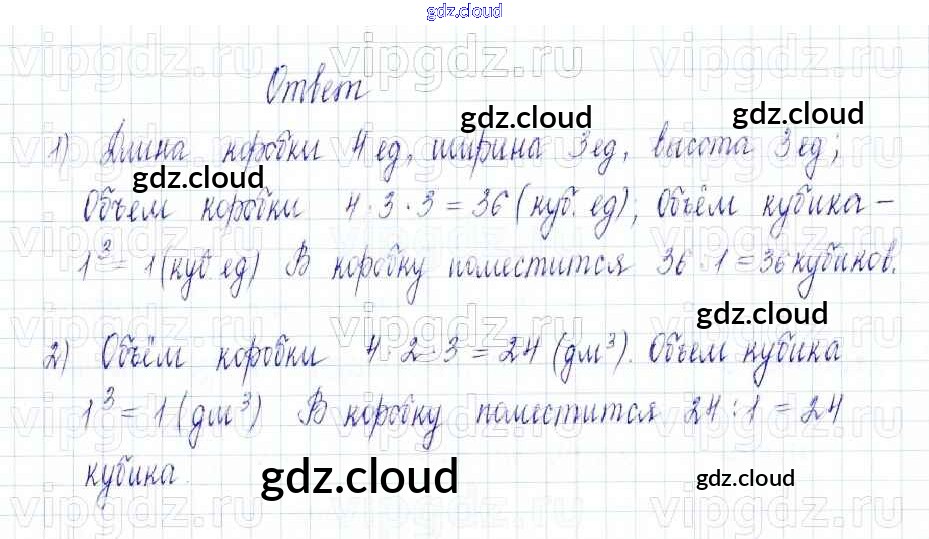 gdz.cloud
Ответ
1) Длина коробки 4 ед, ширина 3 ед, высота 3 ед;
Объем коробки 4 · 3 · 3 = 36 (куб. ед); Объём кубика –
1³ = 1 (куб ед) В коробку поместится 36 : 1 = 36 кубиков.
2) Объём коробки 4 · 2 · 3 = 24 (дм³). Объем кубика
1³ = 1 (дм³) В коробку поместится 24 : 1 = 24
кубика
gdz.cloud
gdz.cloud
gdz.cloud
gdz.cloud
gdz.cloud
gdz.cloud
vipgdz.ru vipgdz.ru vipgdz.ru